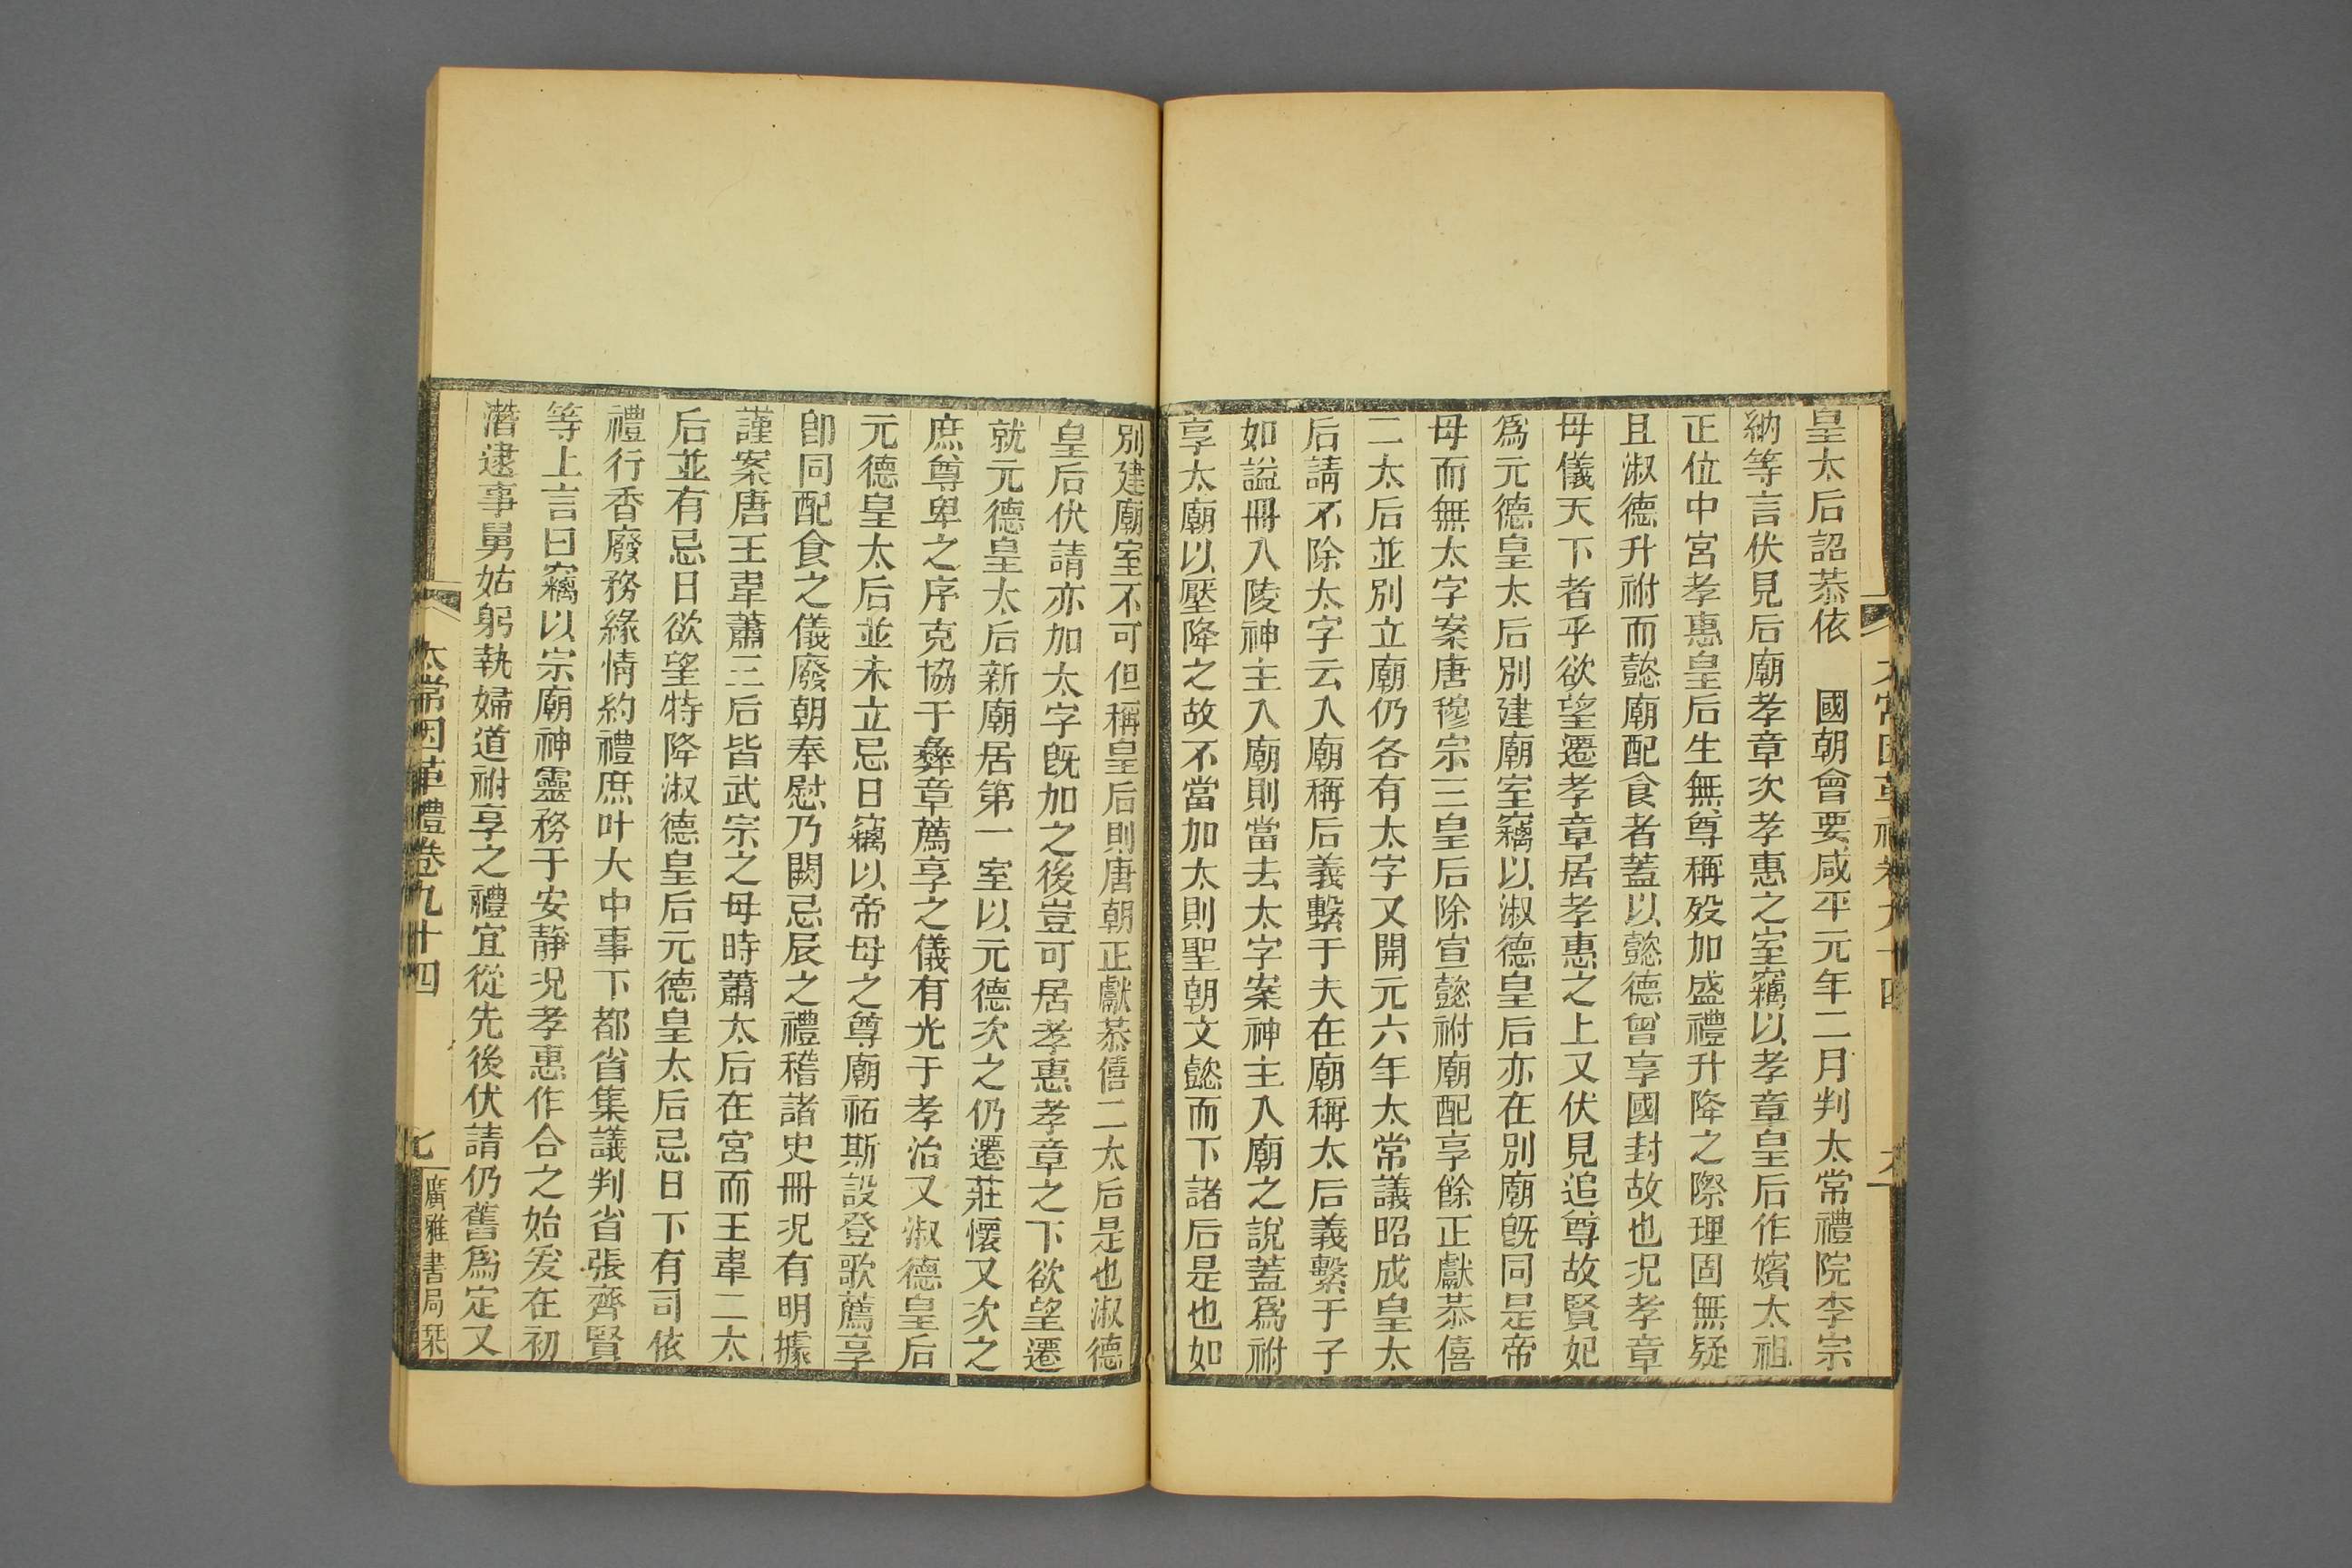 皇太后詔恭依　國朝會要咸平元年二月判太常禮院李宗
納等言伏見后廟孝章次孝惠之室竊以孝章皇后作嬪太祖
正位中宮孝惠皇后生無尊稱歿加盛禮升降之際理固無疑
且淑德升祔而懿廟配食者蓋以懿德曾享國封故也況孝章
母儀天下者乎欲望遷孝章居孝惠之上又伏見追尊故賢妃
爲元德皇太后別建廟室竊以淑德皇后亦在別廟旣同是帝
母而無太字案唐穆宗三皇后除宣懿祔廟配享餘正獻恭僖
二太后並別立廟仍各有太字又開元六年太常議昭成皇太
后請不除太字云入廟稱后義繫于夫在廟稱太后義繫于子
如謚冊入陵神主入廟則當去太字案神主入廟之說蓋爲祔
享太廟以壓降之故不當加太則聖朝文懿而下諸后是也如
別建廟室不可但稱皇后則唐朝正獻恭僖二太后是也淑德
皇后伏請亦加太字旣加之後豈可居孝惠孝章之下欲望遷
就元德皇太后新廟居第一室以元德次之仍遷莊懷又次之
庶尊卑之序克協于彝章薦享之儀有光于孝治又淑德皇后
元德皇太后並未立忌日竊以帝母之尊廟祏斯設登歌薦享
卽同配食之儀廢朝奉慰乃闕忌辰之禮稽諸史冊況有明據
謹案唐王韋蕭三后皆武宗之母時蕭太后在宮而王韋二太
后並有忌日欲望特降淑德皇后元德皇太后忌日下有司依
禮行香廢務緣情約禮庶叶大中事下都省集議判省張齊賢
等上言曰竊以宗廟神靈務于安靜況孝惠作合之始爰在初
潛逮事舅姑躬執婦道祔享之禮宜從先後伏請仍舊爲定又
太常因革禮卷九十四　七　廣雅書局栞